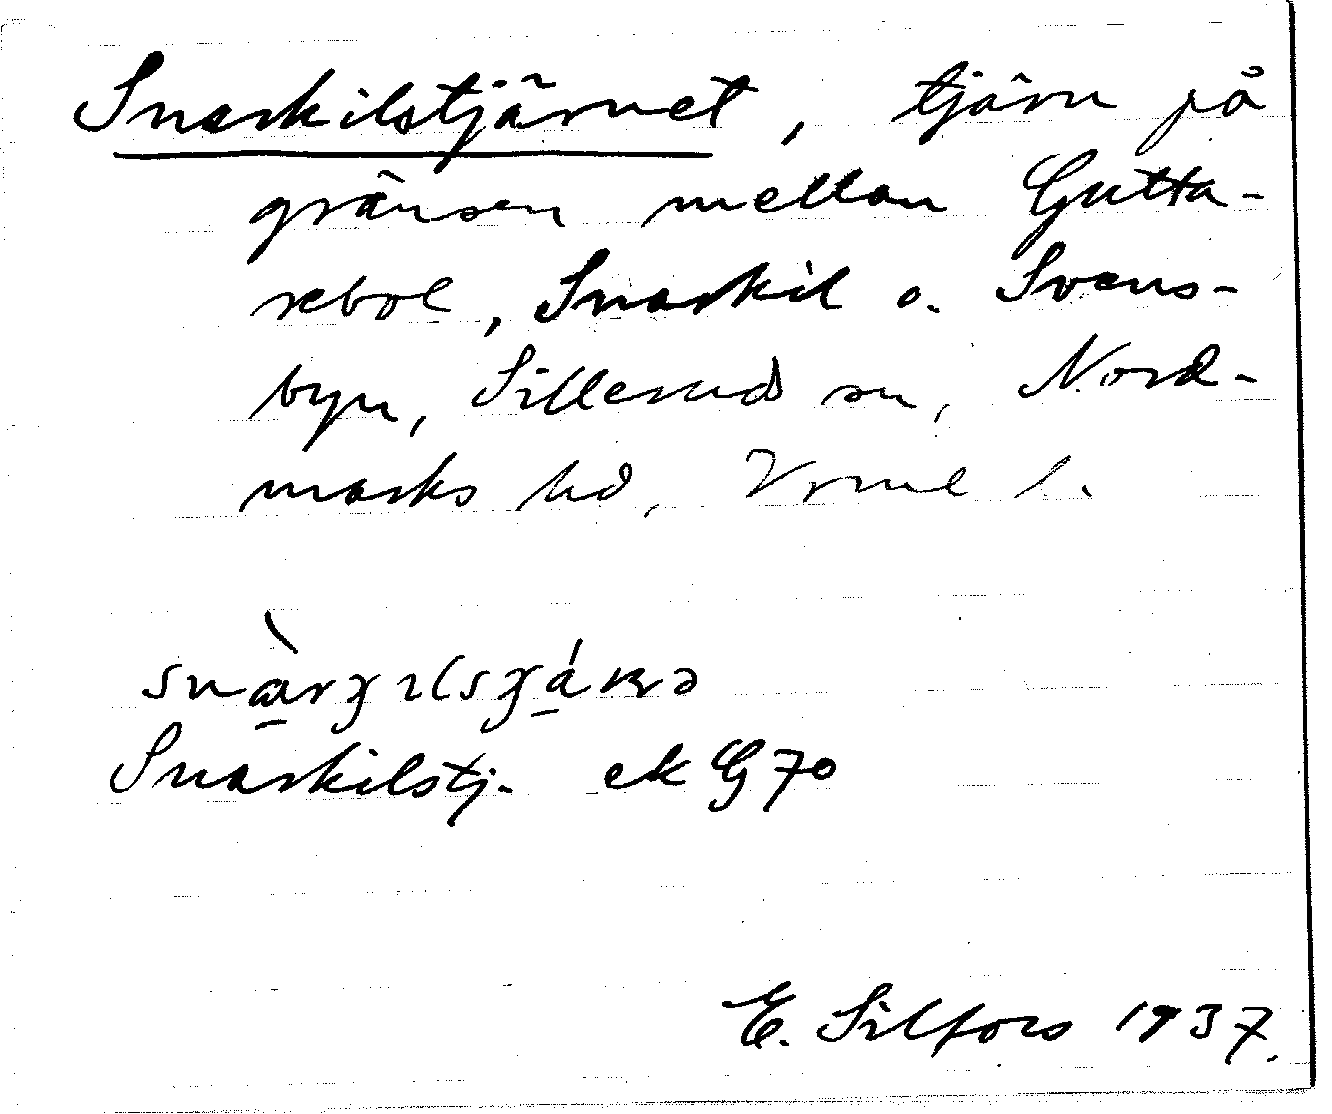 Snarkilstjärnet, tjärn på
gränsen mellan Gutta-
rebol, Snarkil o. Svens-
byn, Sillerud sn, Nord-
marks hd, Vrml l.
Snarkilstj. ek G 70
E. Silfors 1937.